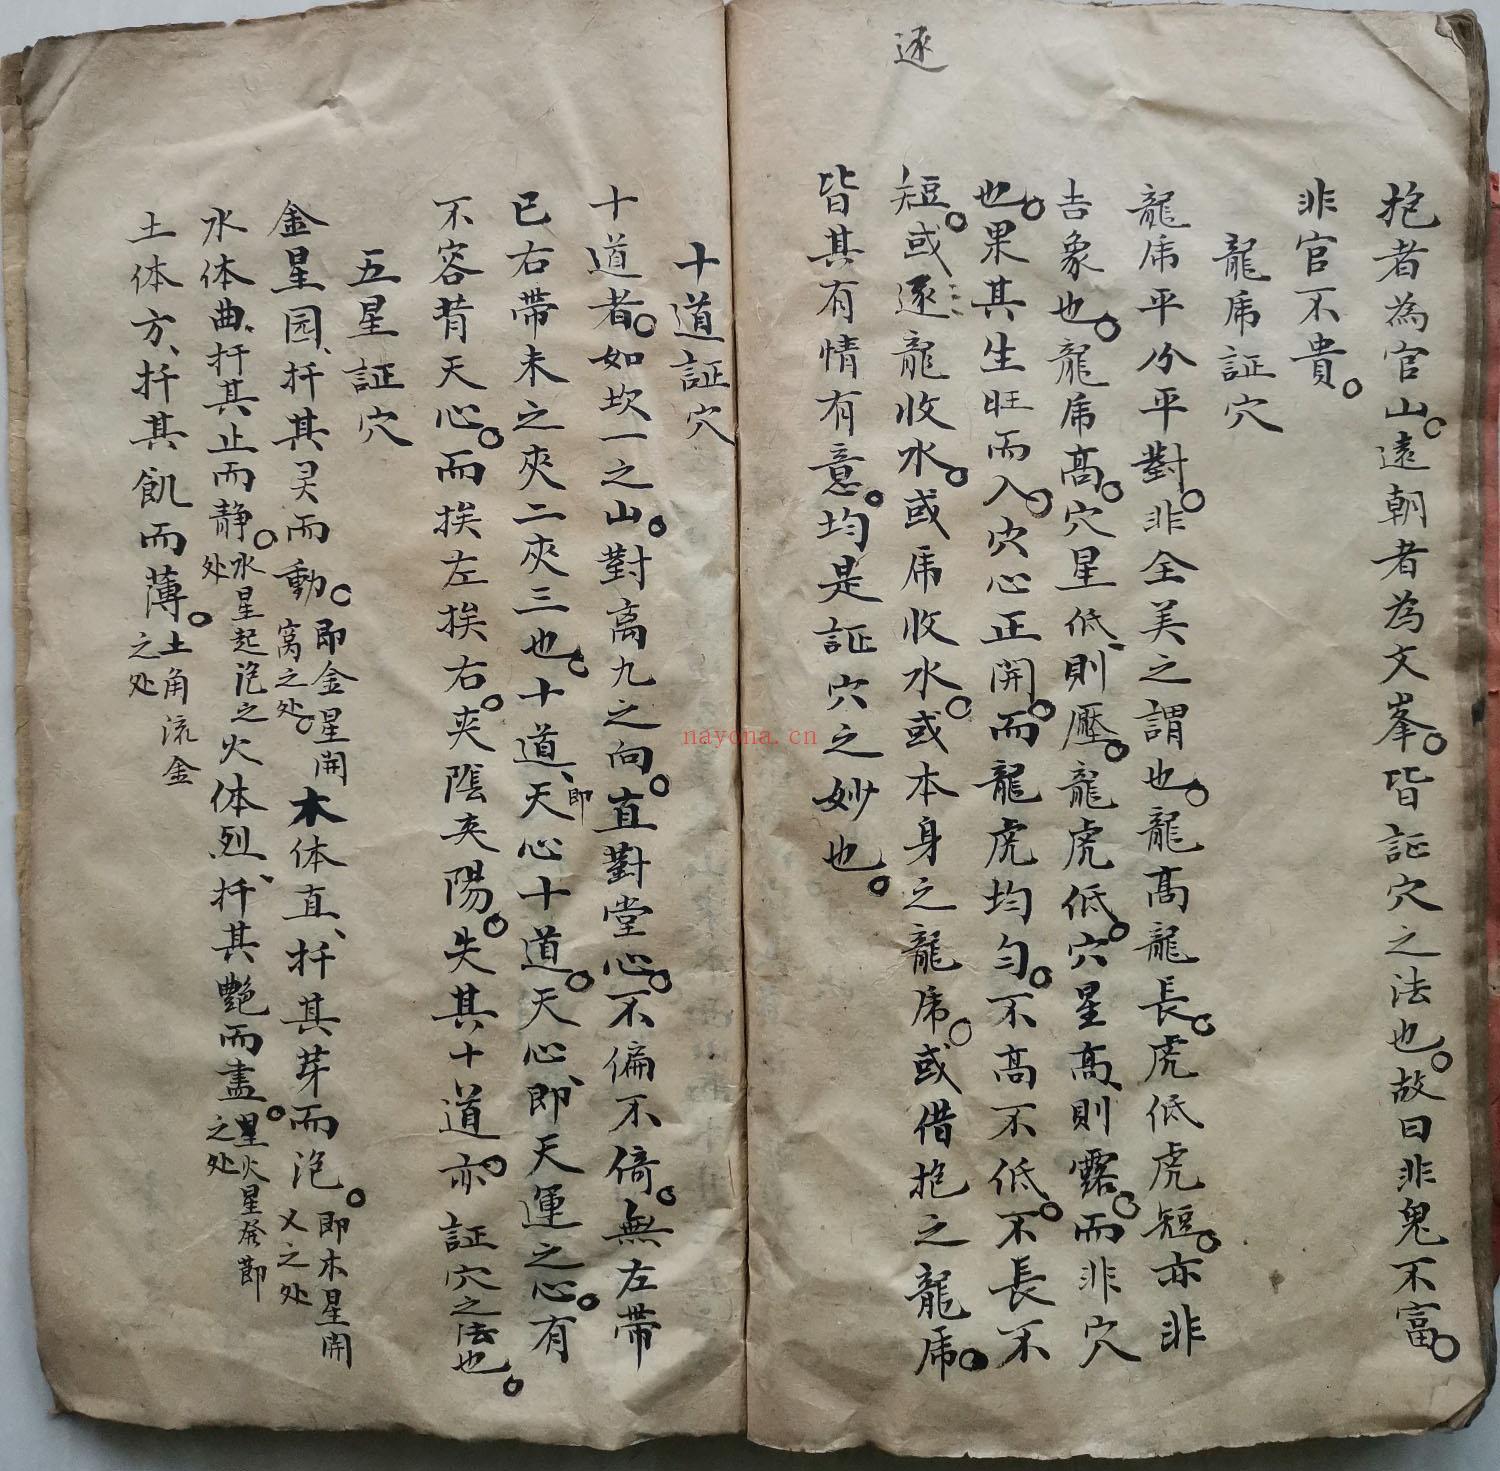 逐
抱者為官山。遠朝者為文峯。皆証穴之法也。故曰非鬼不富。
非官不貴。
龍虎証穴
龍虎平分平對。非全美之謂也。龍高龍長。虎低虎短。亦非
吉象也。龍虎高。穴星低、則壓。龍虎低。穴星高、則露。而非穴
也。果其生旺而入。穴心正開。而龍虎均勻。不高不低。不長不
短。或逐龍收水。或虎收水。或本身之龍虎。或借抱之龍虎。
皆其有情有意。均是証穴之妙也。
十道証穴
十道者。如坎一之山。對离九之向。直對堂心。不偏不倚。無左帶
已右帶未之夾二夾三也。十道、即天心十道。天心、即天運之心。有
不容背天心。而挨左挨右。夾陰夾陽。失其十道。亦証穴之法也。
五星証穴
金星园、扦其灵而動。即金星開窩之处。木体直、扦其芽而泡。即木星開乂之处
水体曲、扦其止而静。水星起泡之处 火体烈、扦其艷而盡。火星發節之处
土体方、扦其飢而薄。土角流金之处
nayona.cn